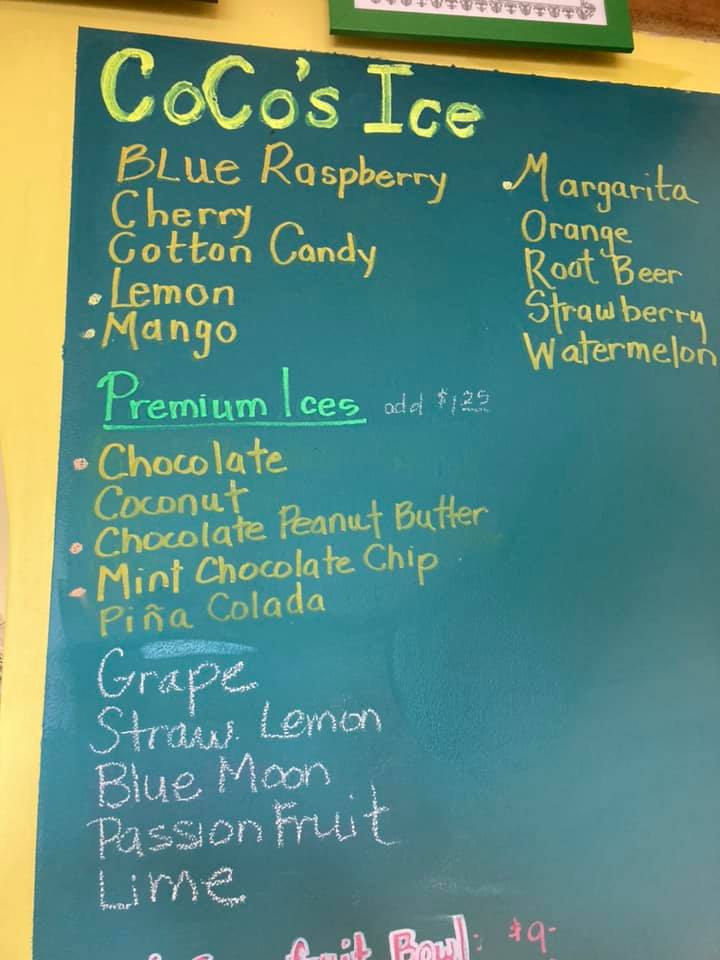 CoCo's Ice
BLue Raspberry
Cherry
Cotton Candy
Lemon
Mango
Margarita
Orange
Root Beer
Strawberry
Watermelon
Premium Ices add $1.25
Chocolate
Coconut
Chocolate Peanut Butter
Mint Chocolate Chip
Piña Colada
Grape
Straw. Lemon
Blue Moon
Passion Fruit
Lime
fruit Bowl: $9-